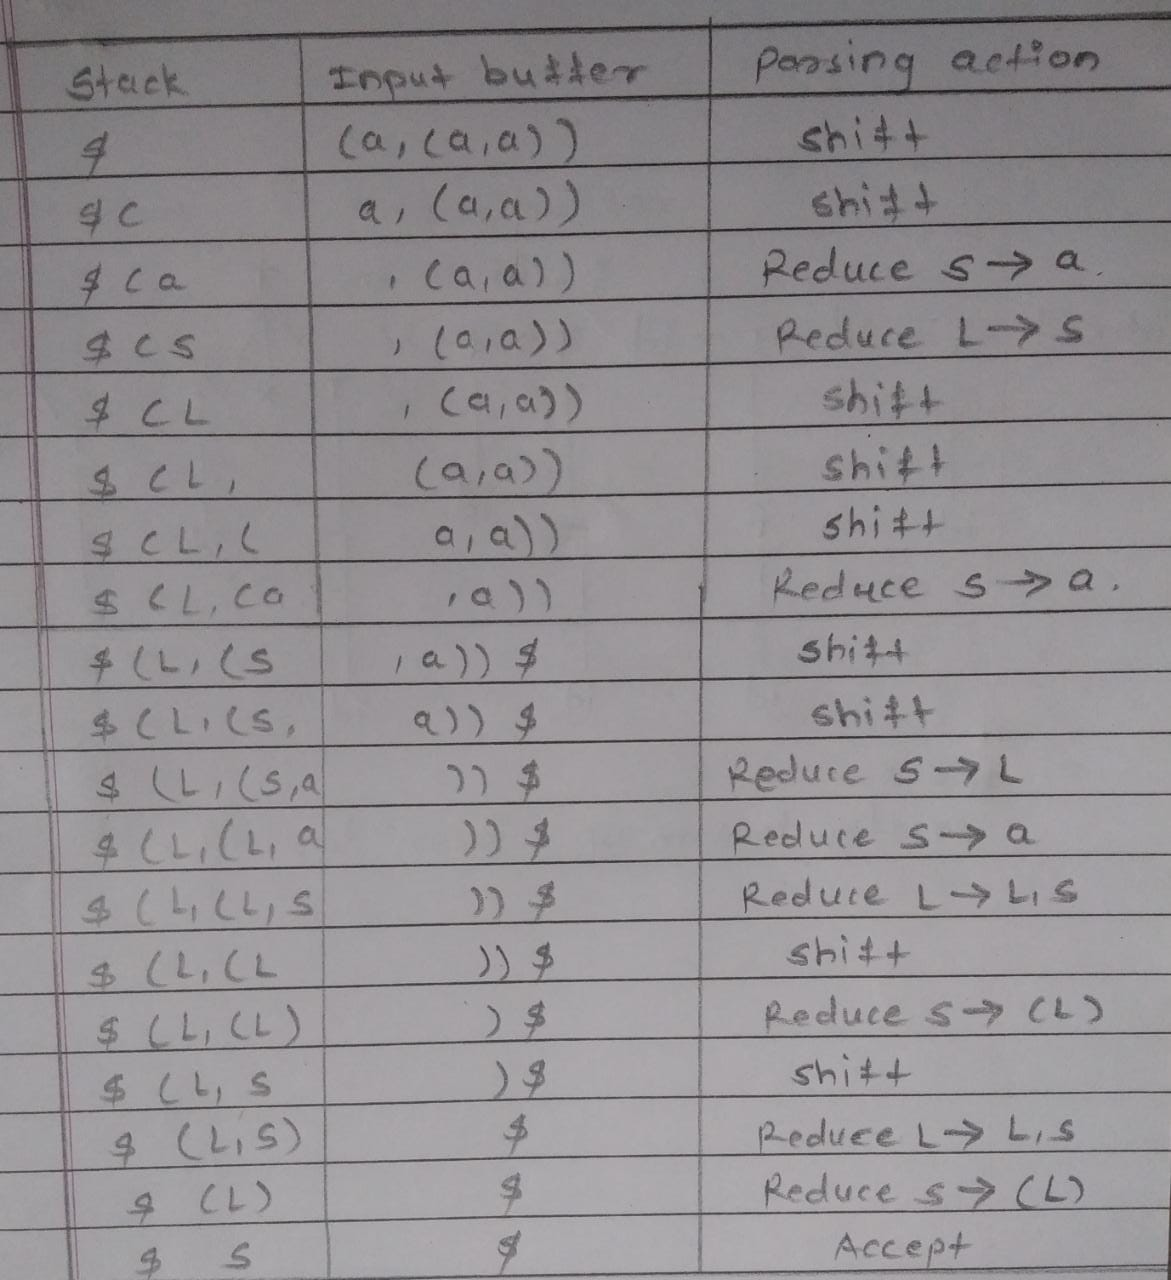 Stack Input buffer Parsing action
$ (a,(a,a)) shift
$( a,(a,a)) shift
$(a ,(a,a)) Reduce S→a.
$(S ,(a,a)) Reduce L→S
$(L ,(a,a)) shift
$(L, (a,a)) shift
$(L,( a,a)) shift
$(L,(a ,a)) Reduce S→a.
$(L,(S ,a)) $ shift
$(L,(S, a)) $ shift
$(L,(S,a )) $ Reduce S→L
$(L,(L,a )) $ Reduce S→a
$(L,(L,S )) $ Reduce L→L,S
$(L,(L )) $ shift
$(L,(L) ) $ Reduce S→(L)
$(L,S ) $ shift
$(L,S) $ Reduce L→L,S
$(L) $ Reduce S→(L)
$ S $ Accept